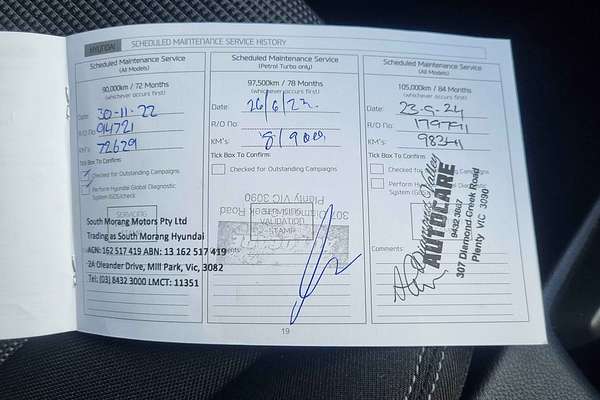 HYUNDAI SCHEDULED MAINTENANCE SERVICE HISTORY
Scheduled Maintenance Service
(All Models)
90,000km / 72 Months
(whichever occurs first)
Date: 30-11-22
R/O No: 94721
KM's: 72629
Tick Box To Confirm:
Checked for Outstanding Campaigns
Perform Hyundai Global Diagnostic
System (GDS)check
SERVICING
South Morang Motors Pty Ltd
Trading as South Morang Hyundai
ACN: 162 517 419 ABN: 13 162 517 419
2A Oleander Drive, Mill Park, Vic, 3082
Tel: (03) 8432 3000 LMCT: 11351
Scheduled Maintenance Service
(Petrol Turbo only)
97,500km / 78 Months
(whichever occurs first)
Date: 26/6/23
R/O No:
KM's:
Tick Box To Confirm:
Checked for Outstanding Campaigns
Plenty VIC 3090
STAMP
Comments:
Scheduled Maintenance Service
(All Models)
105,000km / 84 Months
(whichever occurs first)
Date: 23-5-24
R/O No:
KM's:
Tick Box To Confirm:
Checked for Outstanding Campaigns
Perform Hyundai Global Diagnostic
System (GDS)check
Diamond Valley
AUTOCARE
9432 3007
307 Diamond Creek Road
Plenty VIC 3090
Comments:
19